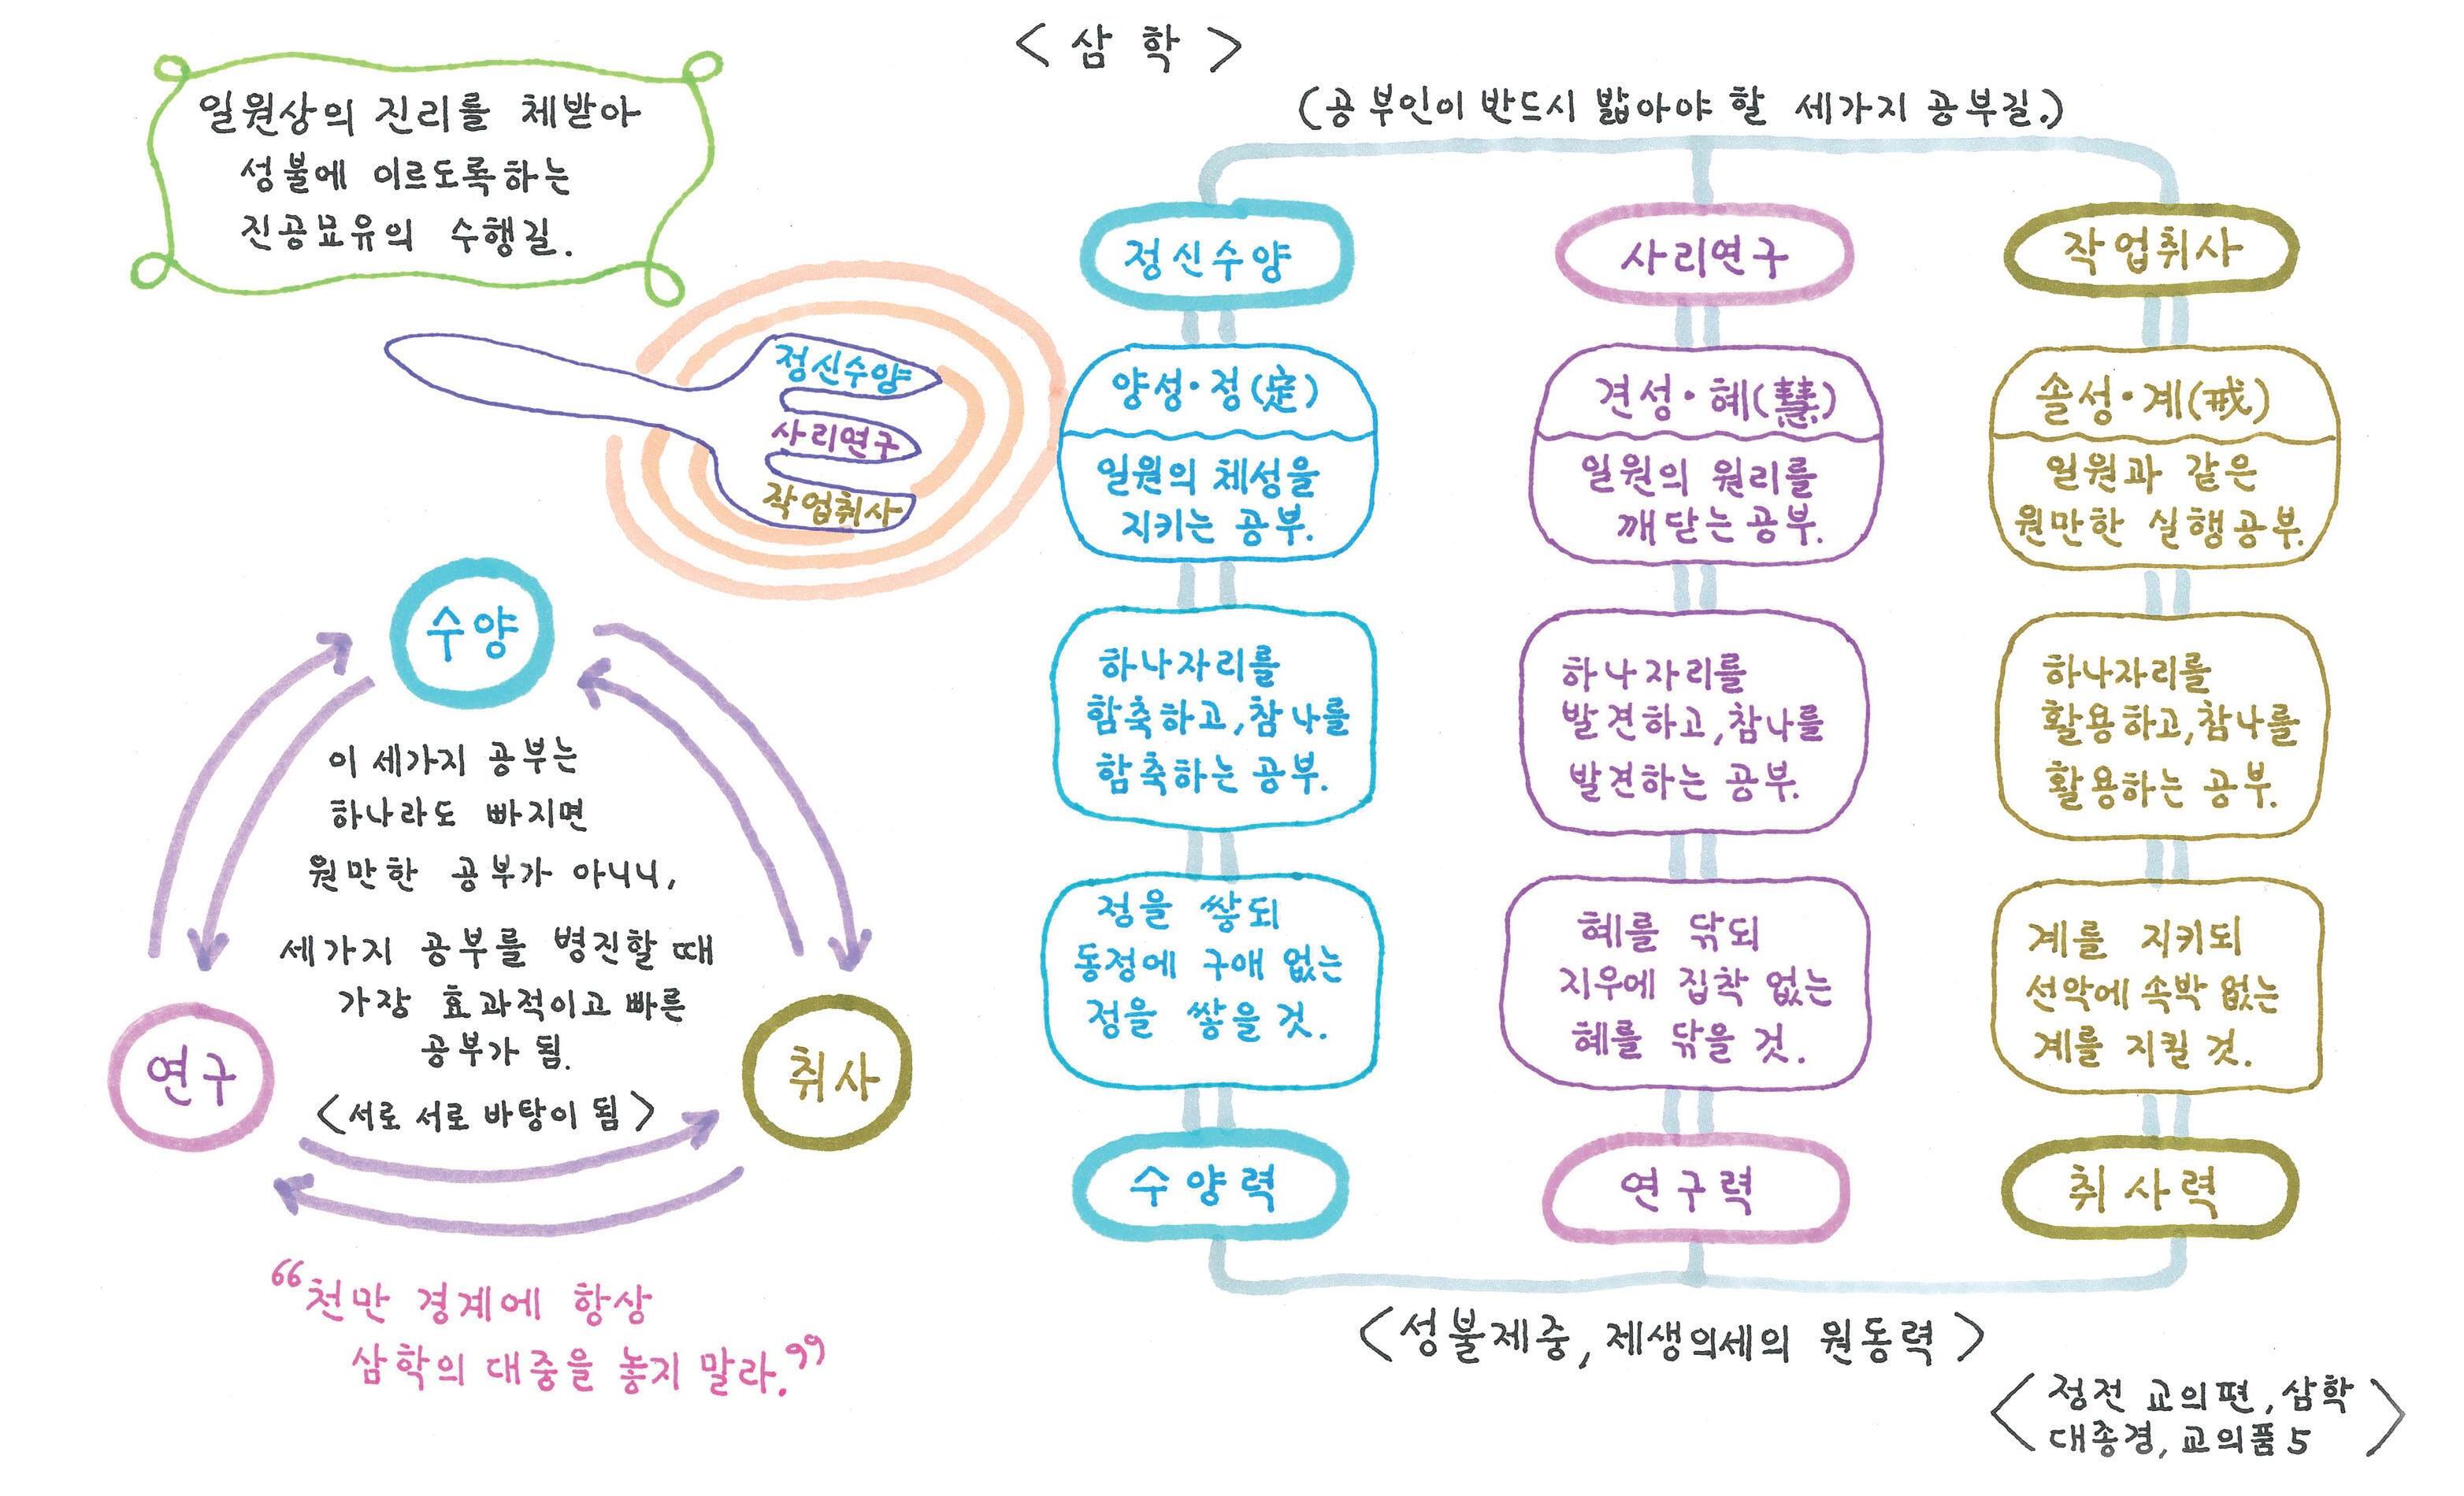 < 삼 학 >
(공부인이 반드시 밟아야 할 세가지 공부길.)
일원상의 진리를 체받아
성불에 이르도록하는
진공묘유의 수행길.
정신수양
사리연구
작업취사
수양
연구
취사
이 세가지 공부는
하나라도 빠지면
원만한 공부가 아니니,
세가지 공부를 병진할 때
가장 효과적이고 빠른
공부가 됨.
<서로 서로 바탕이 됨>
"천만 경계에 항상
삼학의 대중을 놓지 말라."
정신수양
양성·정(定)
일원의 체성을
지키는 공부.
하나자리를
함축하고, 참나를
함축하는 공부.
정을 쌓되
동정에 구애 없는
정을 쌓을 것.
수양력
사리연구
견성·혜(慧)
일원의 원리를
깨닫는 공부.
하나자리를
발견하고, 참나를
발견하는 공부.
혜를 닦되
지우에 집착 없는
혜를 닦을 것.
연구력
작업취사
솔성·계(戒)
일원과 같은
원만한 실행공부.
하나자리를
활용하고, 참나를
활용하는 공부.
계를 지키되
선악에 속박 없는
계를 지킬 것.
취사력
<성불제중, 제생의세의 원동력>
<정전 교의편, 삼학
대종경, 교의품 5>